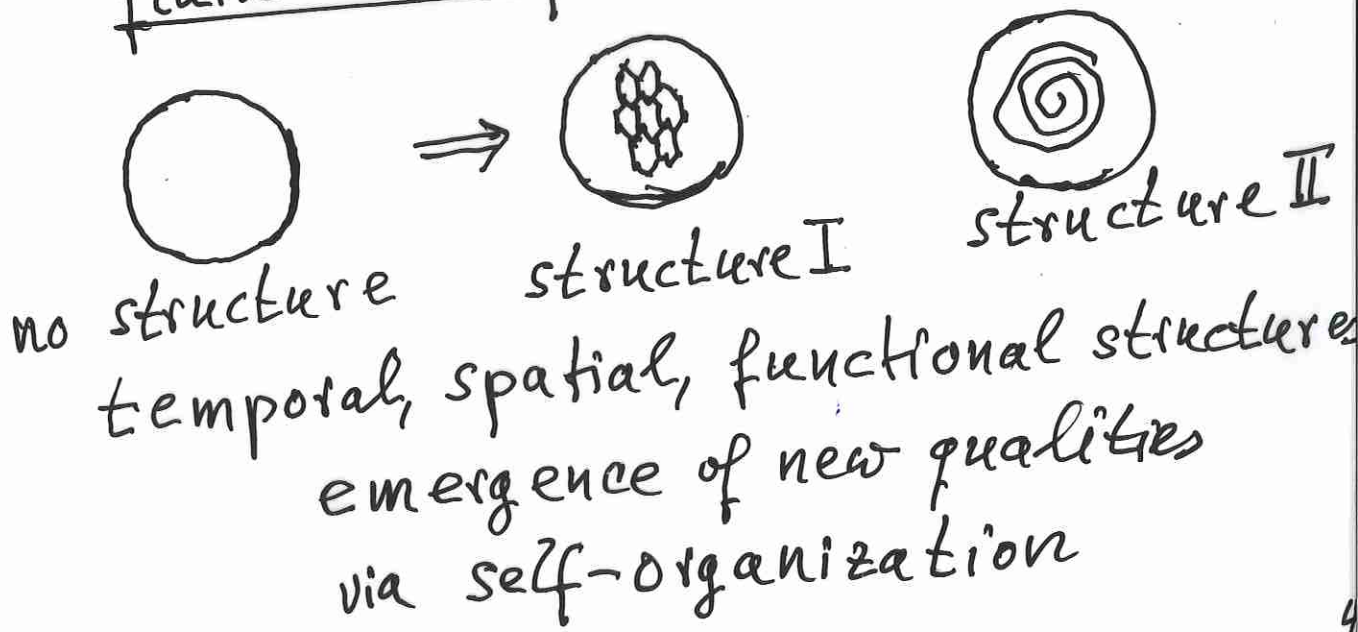 structure II
no structure
structure I
temporal, spatial, functional structures
emergence of new qualities
via self-organization
4